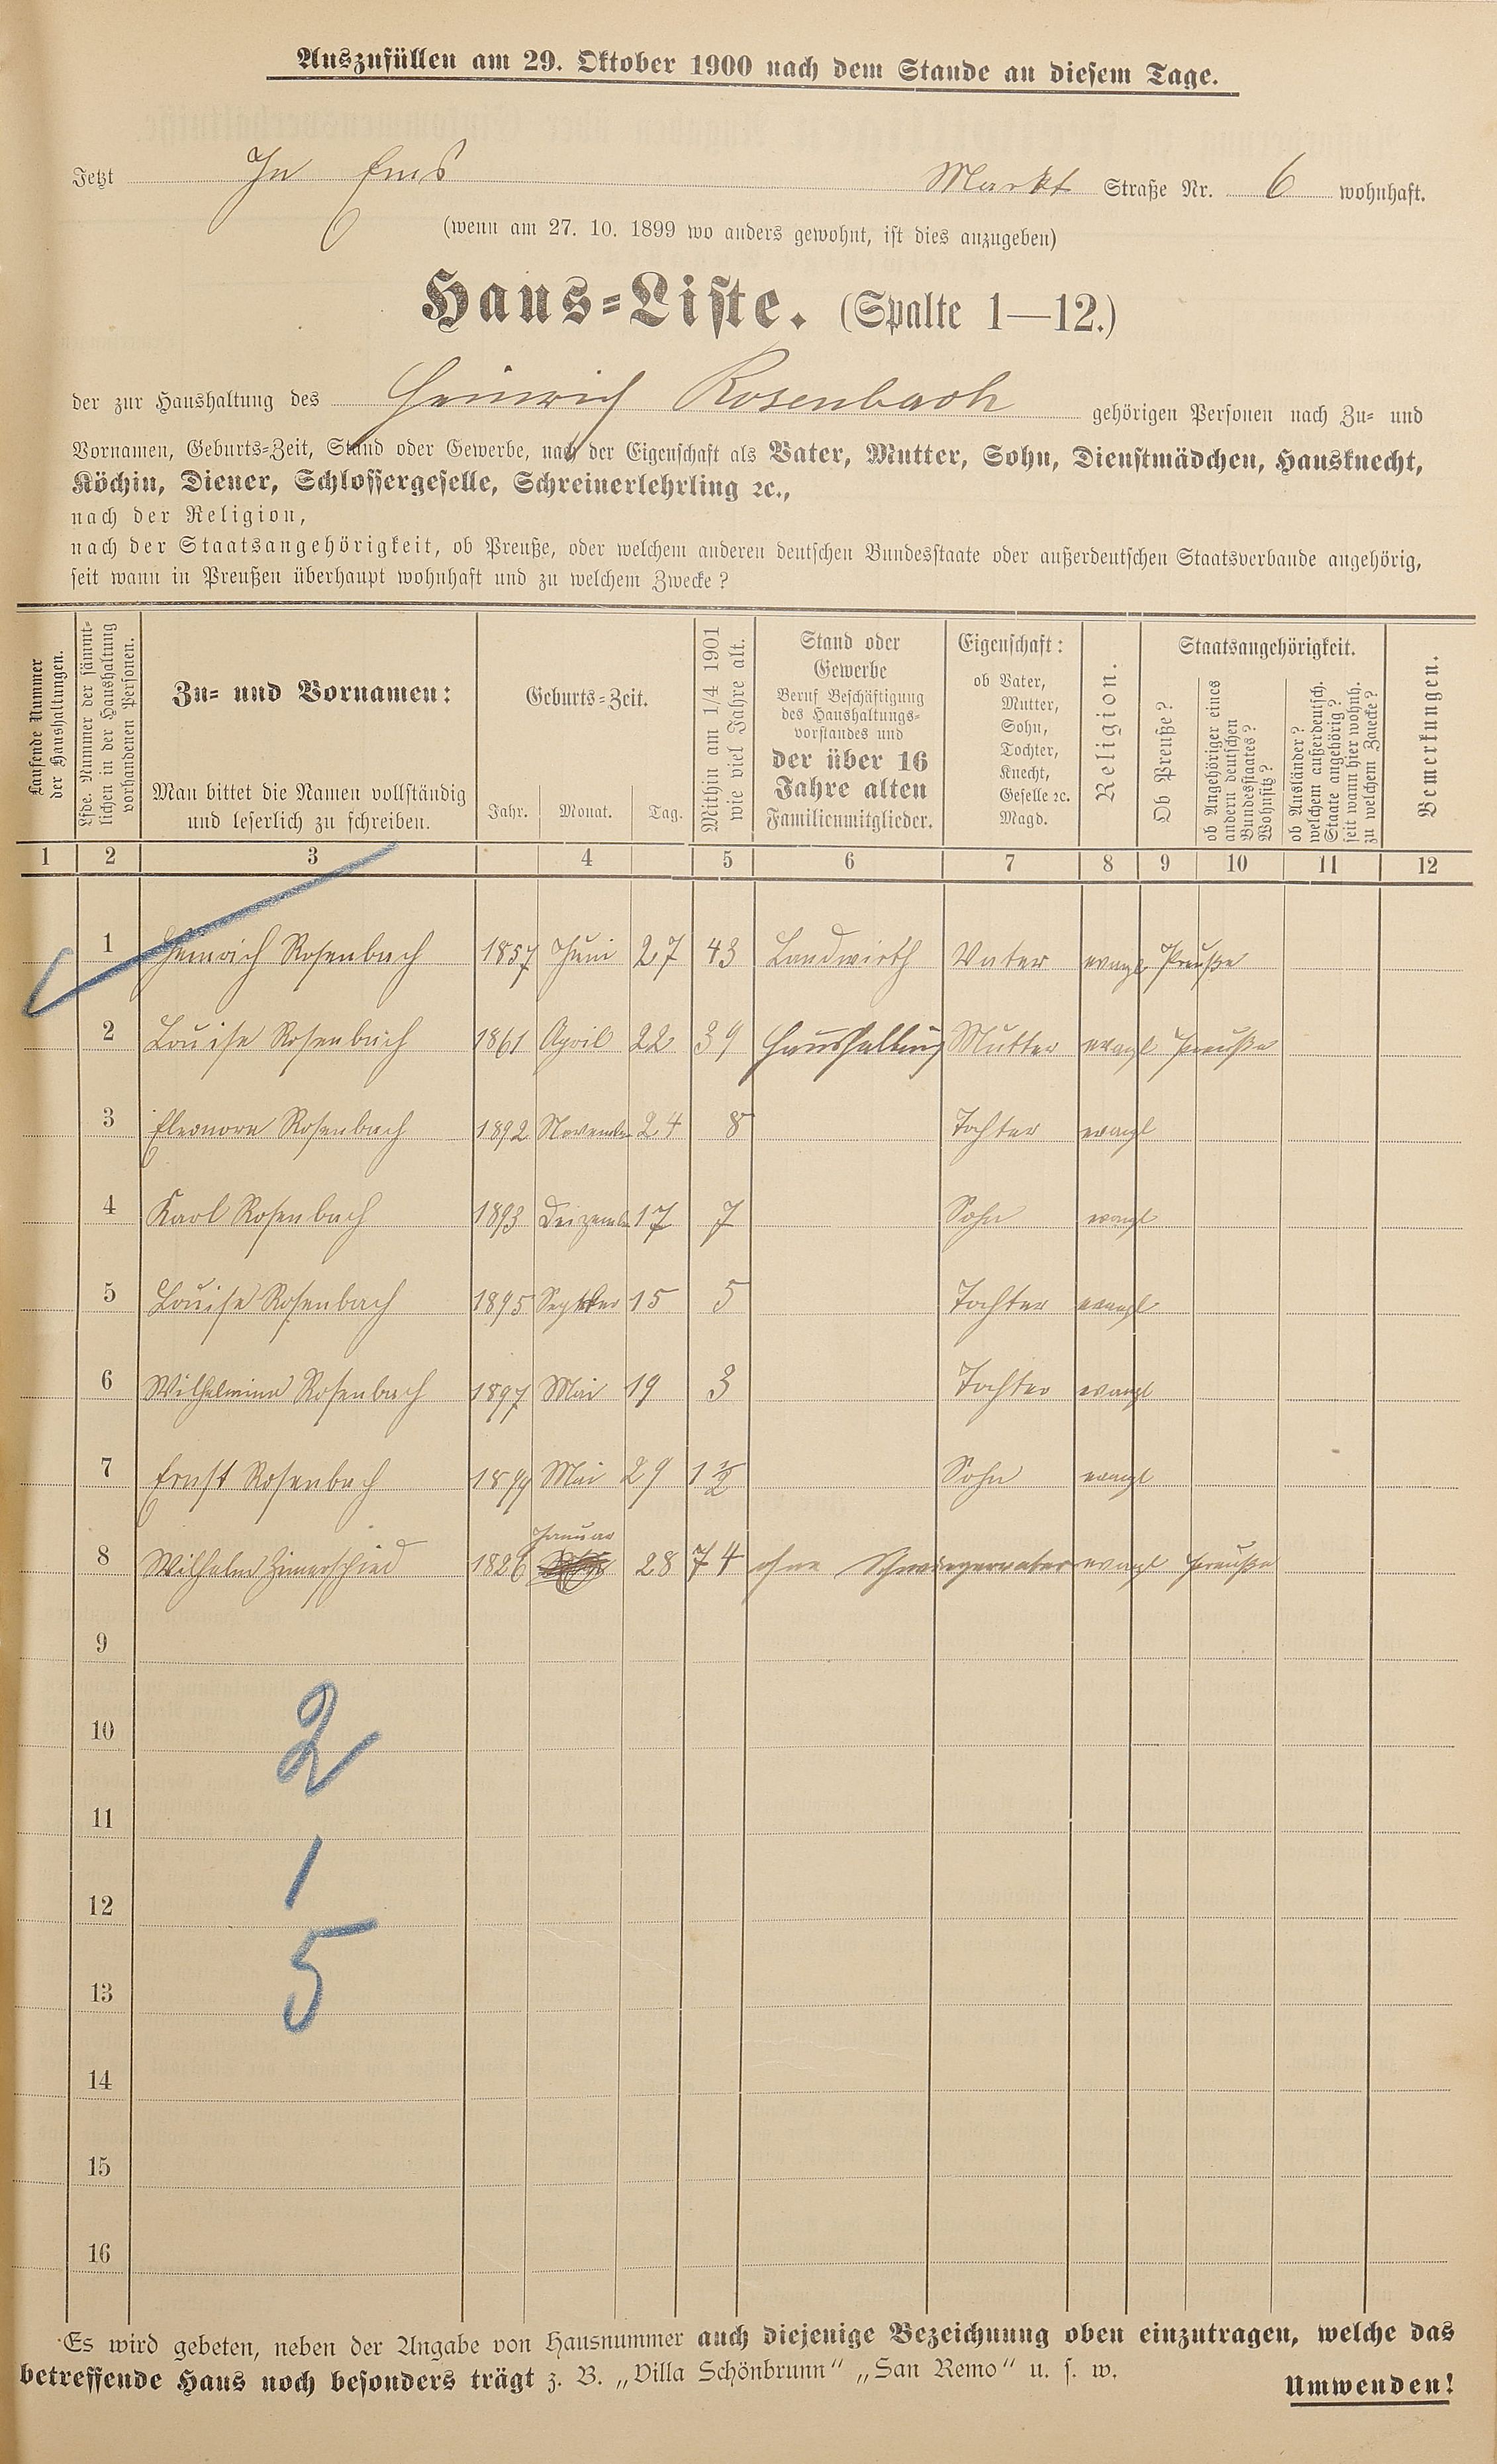 Auszufüllen am 29. Oktober 1900 nach dem Stande an diesem Tage.
Jetzt In Ems Markt Straße Nr. 6 wohnhaft.
(wenn am 27. 10. 1899 wo anders gewohnt, ist dies anzugeben)
Haus-Liste. (Spalte 1—12.)
der zur Haushaltung des Heinrich Rosenbach gehörigen Personen nach Zu- und
Vornamen, Geburts-Zeit, Stand oder Gewerbe, nach der Eigenschaft als Vater, Mutter, Sohn, Dienstmädchen, Hausknecht,
Köchin, Diener, Schlossergeselle, Schreinerlehrling ꝛc.,
nach der Religion,
nach der Staatsangehörigkeit, ob Preuße, oder welchem anderen deutschen Bundesstaate oder außerdeutschen Staatsverbande angehörig,
seit wann in Preußen überhaupt wohnhaft und zu welchem Zwecke?
Laufende Nummer
der Haushaltungen.
Lfde. Nummer der sämmt-
lichen in der Haushaltung
vorhandenen Personen.
Zu- und Vornamen:
Man bittet die Namen vollständig
und leserlich zu schreiben.
Geburts-Zeit.
Jahr. Monat. Tag.
Mithin am 1/4 1901
wie viel Jahre alt.
Stand oder
Gewerbe
Beruf Beschäftigung
des Haushaltungs-
vorstandes und
der über 16
Jahre alten
Familienmitglieder.
Eigenschaft:
ob Vater,
Mutter,
Sohn,
Tochter,
Knecht,
Geselle ꝛc.
Magd.
Religion.
Staatsangehörigkeit.
Ob Preuße?
ob Angehöriger eines
andern deutschen
Bundesstaates?
Wohnsitz?
ob Ausländer?
welchem außerdeutsch.
Staate angehörig?
seit wann hier wohnh.
zu welchem Zwecke?
Bemerkungen.
1 2 3 4 5 6 7 8 9 10 11 12
1 Heinrich Rosenbach 1857 Juni 27 43 Landwirth Vater evangl Preuße
2 Louise Rosenbach 1861 April 22 39 Haushaltung Mutter evangl Preuße
3 Eleonore Rosenbach 1892 November 24 8 Tochter evangl
4 Karl Rosenbach 1893 Dezember 17 7 Sohn evangl
5 Louise Rosenbach 1895 September 15 5 Tochter evangl
6 Wilhelmine Rosenbach 1897 Mai 19 3 Tochter evangl
7 Ernst Rosenbach 1899 Mai 29 1½ Sohn evangl
Januar
8 Wilhelm Zimerschied 1826 28 74 ohne Schwiegervater evangl Preuße
9
10
2
11
12
1
13
5
14
15
16
Es wird gebeten, neben der Angabe von Hausnummer auch diejenige Bezeichnung oben einzutragen, welche das
betreffende Haus noch besonders trägt z. B. „Villa Schönbrunn“ „San Remo“ u. s. w.
Umwenden!